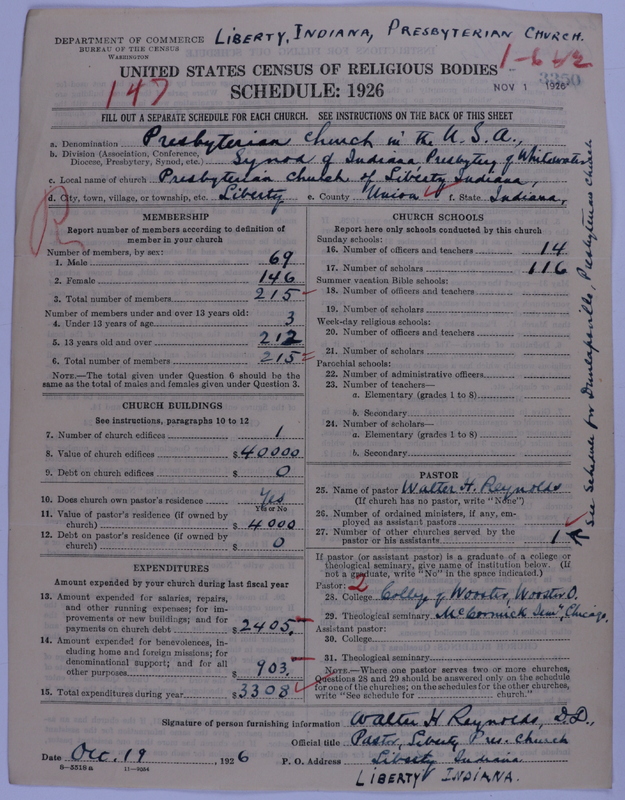 LIBERTY, INDIANA, PRESBYTERIAN CHURCH.
DEPARTMENT OF COMMERCE
BUREAU OF THE CENSUS
WASHINGTON
1-6
3350
UNITED STATES CENSUS OF RELIGIOUS BODIES
NOV 1 1926
147
SCHEDULE: 1926
FILL OUT A SEPARATE SCHEDULE FOR EACH CHURCH. SEE INSTRUCTIONS ON THE BACK OF THIS SHEET
a. Denomination Presbyterian Church in the U.S.A.,
b. Division (Association, Conference, Diocese, Presbytery, Synod, etc.) Synod of Indiana Presbytery of Whitewater
c. Local name of church Presbyterian Church of Liberty Indiana,
d. City, town, village, or township, etc. Liberty e. County Union f. State Indiana,
MEMBERSHIP
Report number of members according to definition of member in your church
Number of members, by sex:
1. Male 69
2. Female 146
3. Total number of members 215
Number of members under and over 13 years old:
4. Under 13 years of age 3
5. 13 years old and over 212
6. Total number of members 215
NOTE.—The total given under Question 6 should be same as the total of males and females given under Question 3.
CHURCH BUILDINGS
See instructions, paragraphs 10 to 12
7. Number of church edifices 1
8. Value of church edifices $40000
9. Debt on church edifices $ 0
10. Does church own pastor's residence Yes
Yes or No
11. Value of pastor's residence (if owned by church) $ 4000
12. Debt on pastor's residence (if owned by church) $ 0
EXPENDITURES
Amount expended by your church during last fiscal year
13. Amount expended for salaries, repairs, and other running expenses; for improvements or new buildings; and for payments on church debt $2405.
14. Amount expended for benevolences, including home and foreign missions; for denominational support; and for all other purposes $ 903.
15. Total expenditures during year $3308
CHURCH SCHOOLS
Report here only schools conducted by this church
Sunday schools:
16. Number of officers and teachers 14
17. Number of scholars 116
Summer vacation Bible schools:
18. Number of officers and teachers
19. Number of scholars
Week-day religious schools:
20. Number of officers and teachers
21. Number of scholars
Parochial schools:
22. Number of administrative officers
23. Number of teachers—
a. Elementary (grades 1 to 8)
b. Secondary
24. Number of scholars—
a. Elementary (grades 1 to 8)
b. Secondary
PASTOR
25. Name of pastor Walter H. Reynolds
(If church has no pastor, write "None")
26. Number of ordained ministers, if any, employed as assistant pastors
27. Number of other churches served by the pastor or his assistants 1
See Schedule for Dunlapsville, Presbyterian Church
If pastor (or assistant pastor) is a graduate of a college or theological seminary, give name of institution below. (If not a graduate, write "No" in the space indicated.)
Pastor: 2
28. College College of Wooster, Wooster O.
29. Theological seminary McCormick Sem'y Chicago,
Assistant pastor:
30. College
31. Theological seminary
NOTE.—Where one pastor serves two or more churches, Questions 28 and 29 should be answered only on the schedule for one of the churches; on the schedules for the other churches, write "See schedule for church."
Signature of person furnishing information Walter H Reynolds, D.D.,
Official title Pastor, Liberty Pres. Church
Date Oct. 19 1926 P. O. Address Liberty Indiana
8-5518 a 11-9084
LIBERTY INDIANA.